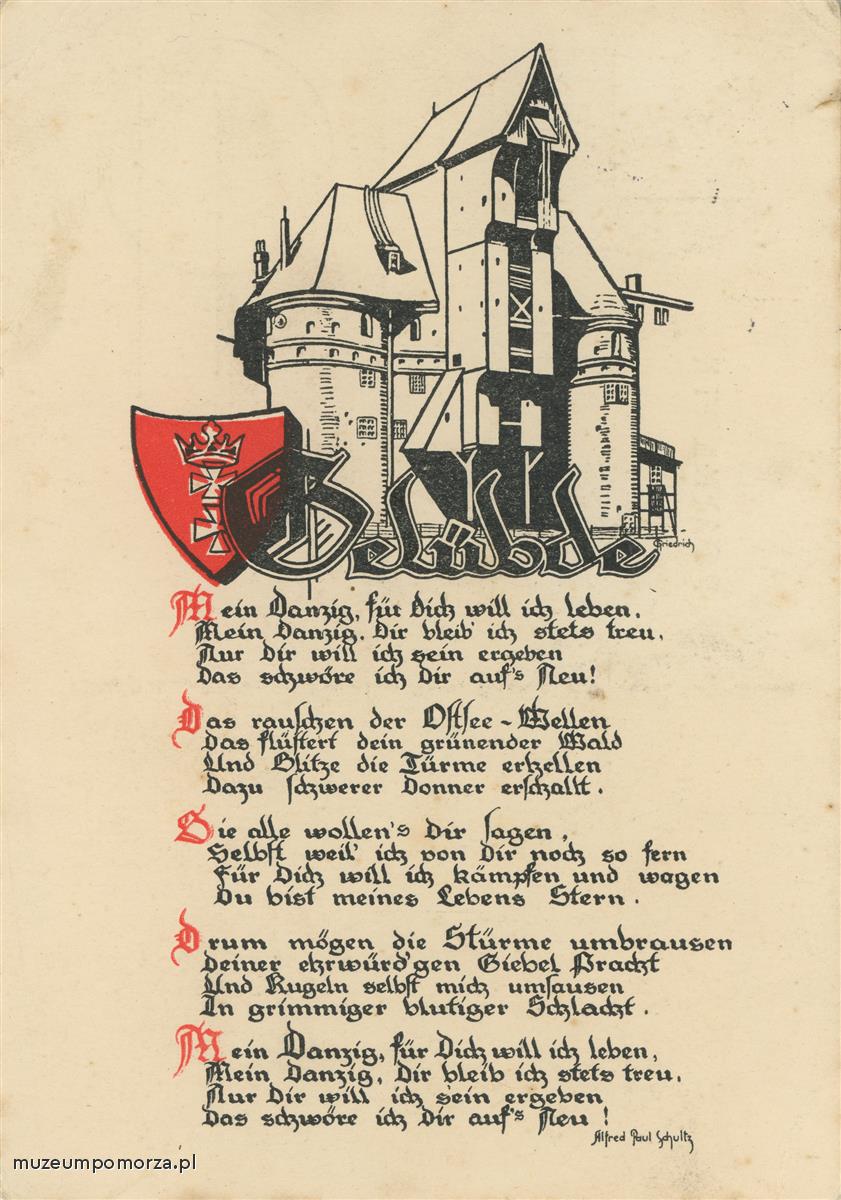 Gelübde
Friedrich
Mein Danzig, für Dich will ich leben,
Mein Danzig, Dir bleib' ich stets treu,
Nur Dir will ich sein ergeben
Das schwöre ich Dir auf's Neu!
Das rauschen der Ostsee-Wellen
Das flüstert dein grünender Wald
Und Blitze die Türme erhellen
Dazu schwerer Donner erschallt.
Sie alle wollen's Dir sagen,
Selbst weil' ich von Dir noch so fern
Für Dich will ich kämpfen und wagen
Du bist meines Lebens Stern.
Drum mögen die Stürme umbrausen
Deiner ehrwürd'gen Giebel Pracht
Und Kugeln selbst mich umsausen
In grimmiger blutiger Schlacht.
Mein Danzig, für Dich will ich leben,
Mein Danzig, Dir bleib ich stets treu,
Nur Dir will ich sein ergeben
Das schwöre ich Dir auf's Neu!
Alfred Paul Schultz
muzeumpomorza.pl